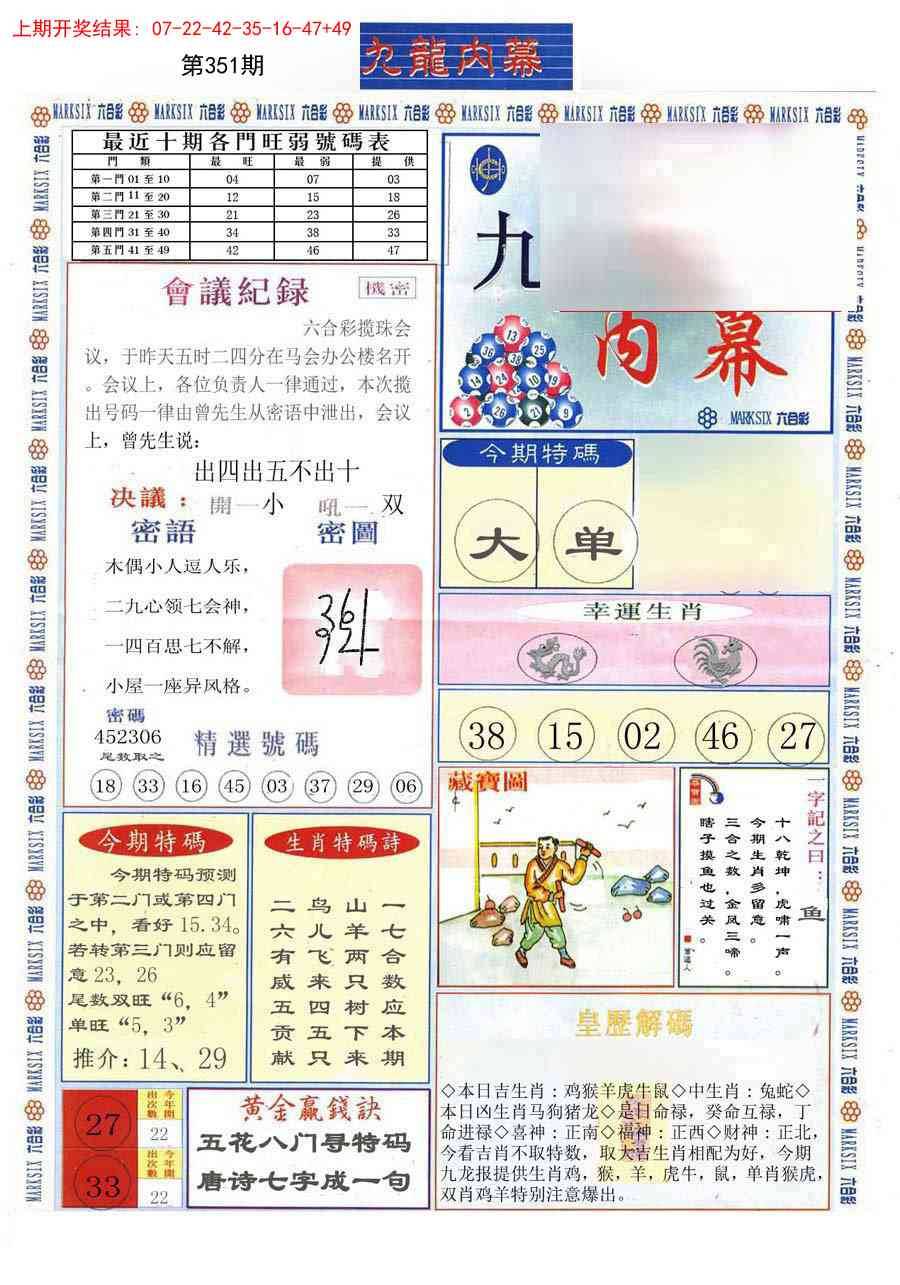 上期开奖结果: 07-22-42-35-16-47+49
第351期
九龍内幕
MARKSIX 六合彩 MARKSIX 六合彩 MARKSIX 六合彩 MARKSIX 六合彩 MARKSIX 六合彩 MARKSIX 六合彩 MARKSIX 六合彩 MARKSIX 六合彩
最近十期各門旺弱號碼表
門 類 最 旺 最 弱 提 供
第一門 01 至 10 04 07 03
第二門 11 至 20 12 15 18
第三門 21 至 30 21 23 26
第四門 31 至 40 34 38 33
第五門 41 至 49 42 46 47
會議紀録 機密
六合彩揽珠会
议，于昨天五时二四分在马会办公楼名开
。会议上，各位负责人一律通过，本次揽
出号码一律由曾先生从密语中泄出，会议
上，曾先生说：
出四出五不出十
决議： 開一小 吼一 双
密語 密圖
木偶小人逗人乐，
二九心领七会神，
一四百思七不解，
小屋一座异风格。
密碼
452306
尾数取之
精選號碼
18 33 16 45 03 37 29 06
今期特碼
今期特码预测
于第二门或第四门
之中，看好 15.34。
若转第三门则应留
意 23，26
尾数双旺“6，4”
单旺“5，3”
推介：14、29
生肖特碼詩
一七合数应本期
山羊两只树下来
鸟儿飞来四五只
二六有威五贡献
27 今年開出次數 22
33 今年開出次數 22
黄金贏錢訣
五花八门寻特码
唐诗七字成一句
九
内幕
13
36 38 25
14 24 10 19
2 26 21 9
MARKSIX 六合彩
今期特碼
大 单
幸運生肖
38 15 02 46 27
藏寶圖
一字記之曰：鱼
十八乾坤，虎啸一声。
今期生肖多留意。
三合之数，金凤三啼。
瞎子摸鱼也过关。
皇歷解碼
◇本日吉生肖：鸡猴羊虎牛鼠◇中生肖：兔蛇◇
本日凶生肖马狗猪龙◇是日命禄，癸命互禄，丁
命进禄◇喜神：正南◇福神：正西◇财神：正北，
今看吉肖不取特数，取大吉生肖相配为好，今期
九龙报提供生肖鸡，猴，羊，虎牛，鼠，单肖猴虎，
双肖鸡羊特别注意爆出。